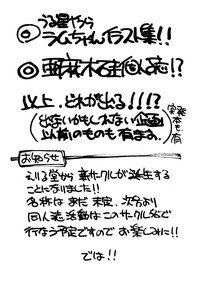 ◎うる星やつら
ラムちゃんイラスト集!!
◎亜麻木硅個人誌!?
以上、どれが出る!!!?
(出ないかもしれない企画
以前のものも有まる。)
実発本も有
お知らせ
えりる堂から新サークルが誕生する
ことになりました!!
名称はまだ未定、次号より
同人誌活動はこのサークル名で
行なう予定ですのでお楽しみに!!
では!!